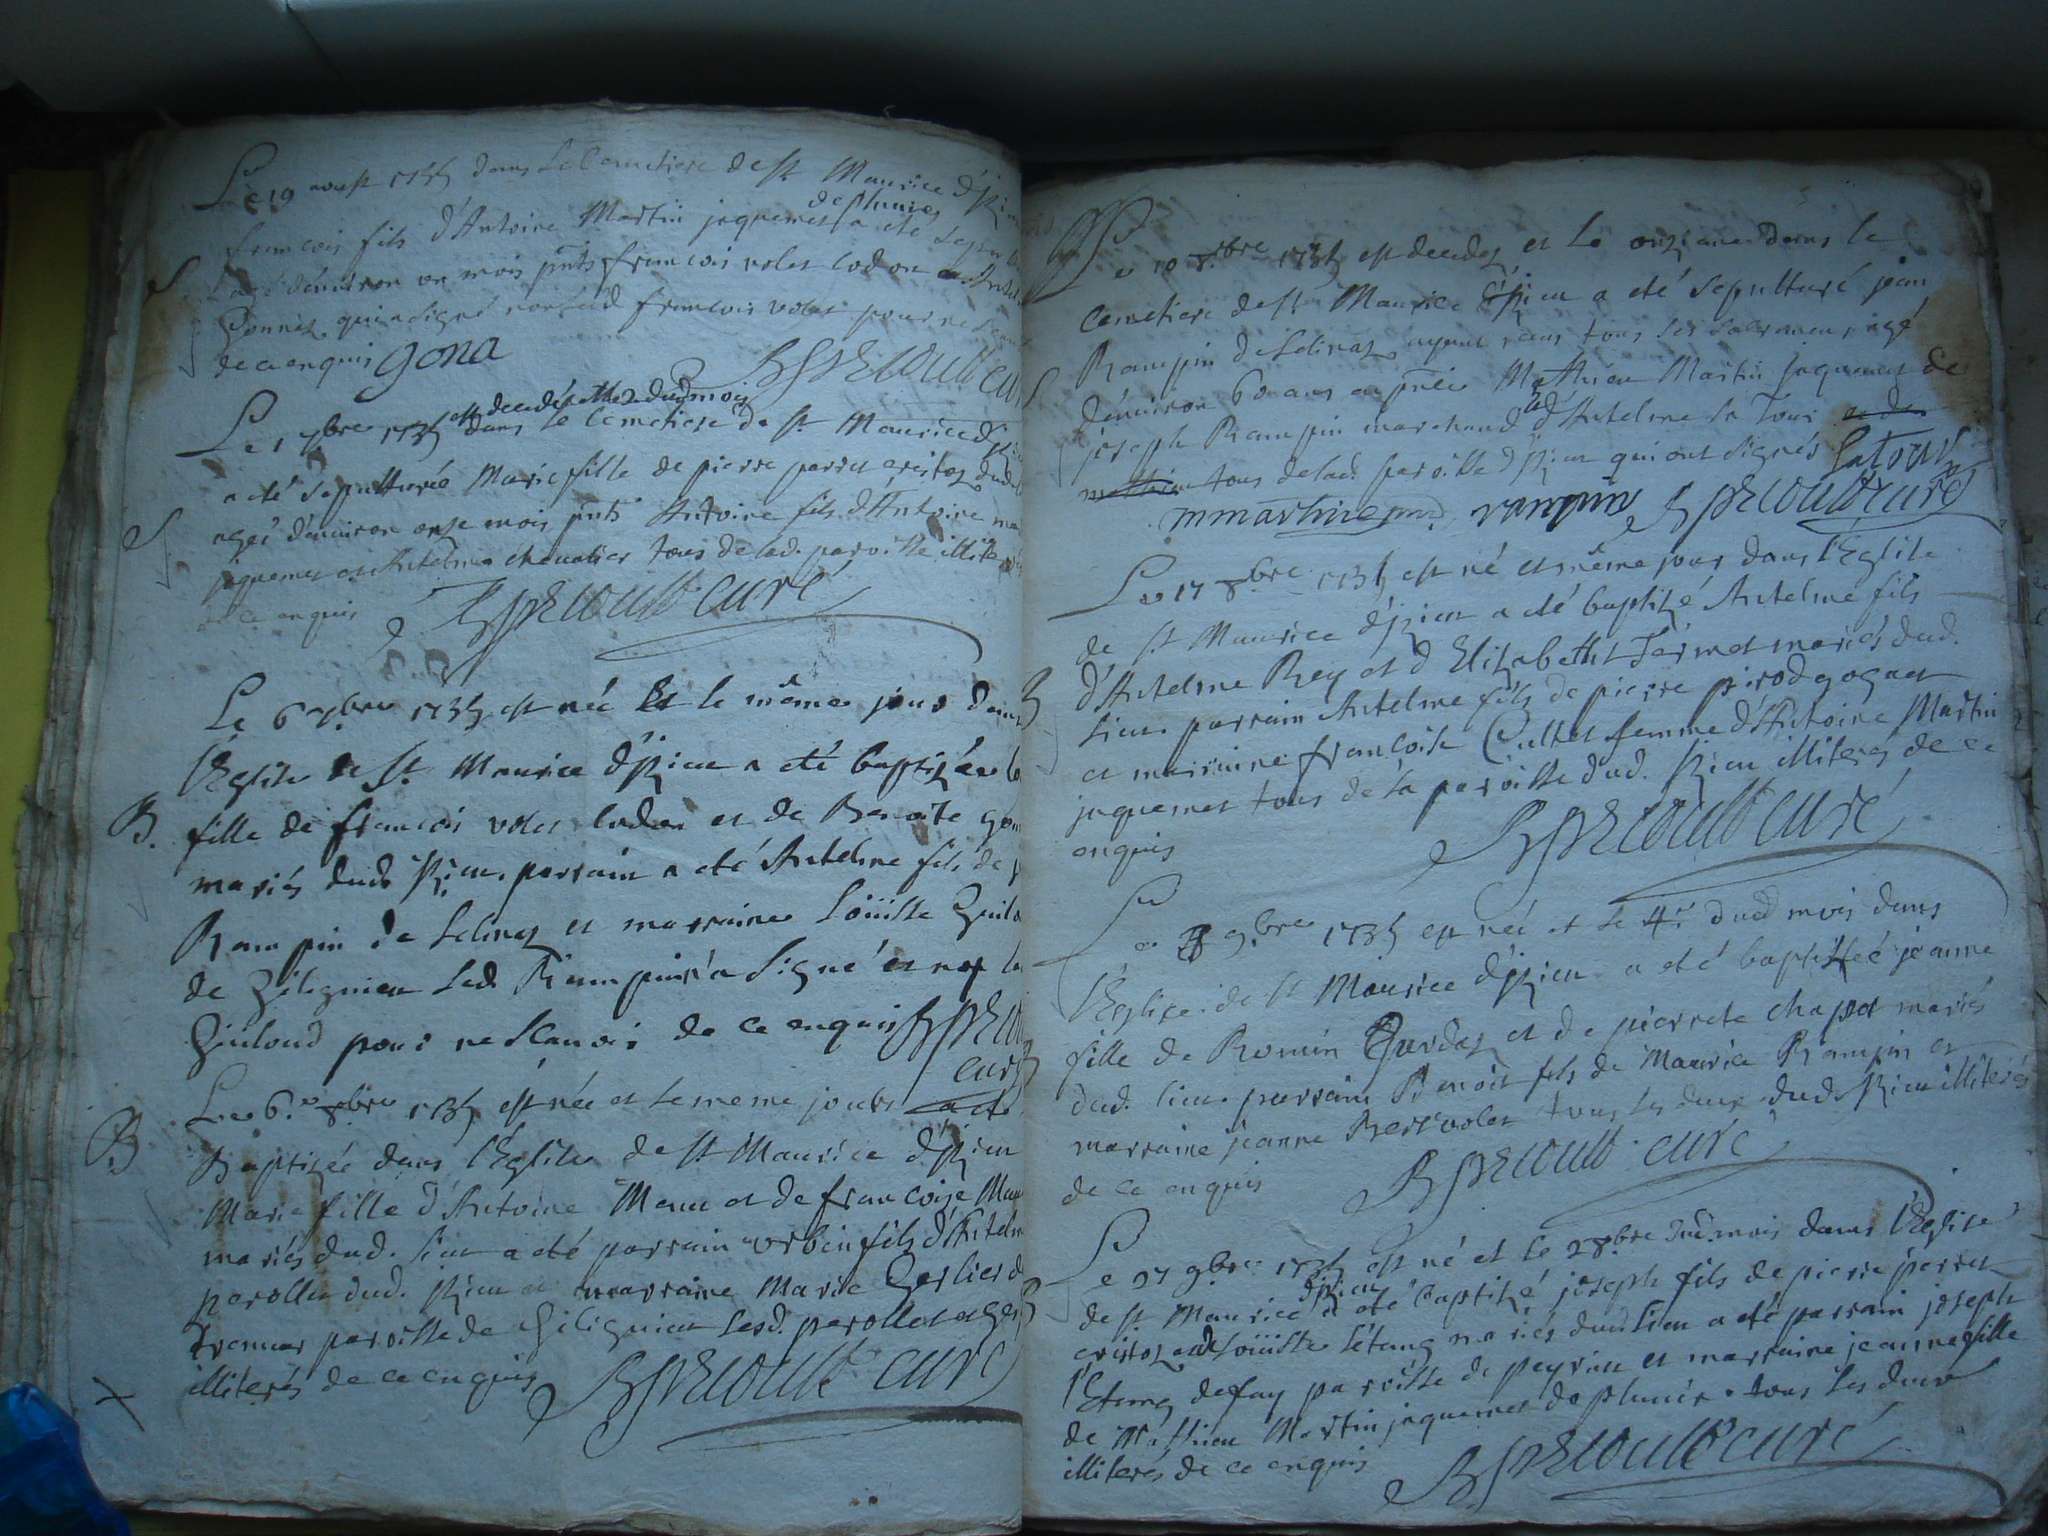 Le 19 aoust 1735 dans le cemetiere de St Maurice d'Izieu
de plunies
francois fils d'Antoine Martin jaquemet a été sepult
agé d'environ un mois pnts francois volet lodon et Antel
Gonnet qui a signé non led francois volet pour ne scavoir
de ce enquis gona
B Precoult curé
est decedée et le 2 dud mois
Le 1 7bre 1735 dans le cemetiere de St Maurice d'Izieu
a été sepulturée Marie fille de pierre perret creitoz dud
agée d'environ onze mois pnts Antoine fils d'Antoine mar
jaquemet et Antelme chevalier tous de lad. paroisse illiterés
de ce enquis B Precoult curé
Le 6 7bre 1735 est née et le même jour dans
l'Eglise de St Maurice d'Izieu a été baptizée lo
B. fille de francois volet lodon et de Benoite gon
mariés dud Izieu, parrain a été Antelme fils de
Rampin de Selinaz et marraine Loüise Guilo
de Gilignieu led. Rampin a signé et non la
Guiloud pour ne scavoir de ce enquis B Precoult
curé
Le 6e 8bre 1735 est née et le meme jour a eté
B Baptizée dans l'Eglise de St Maurice d'Izieu
Marie fille d'Antoine Meun et de francoize Mau
mariés dud. lieu a été parrain urbin fils d'Antelme
perollet dud. Izieu et marraine Marie Gerlier de
tremur paroisse de Gilignieu lesd. perollet et Gerlier
illiterés de ce enquis B Precoult curé
Le 10 8bre 1735 est decedez et le onzieme dans le
cemetiere de St Maurice d'Izieu a été sepulturé jean
Rampin de Selinaz, ayant receu tous les sacremens, agé
d'environ 60 ans en pnce Mathieu Martin jaquemet de
joseph Rampin marchand et d'Antelme la Tour et de
mathieu tous de lad. paroisse d'Izieu qui ont signés latour
mmartin rampin B Precoult curé
Le 17 8bre 1735 est né et même jour dans l'Eglise
de St Maurice d'Izieu a été baptizé Antelme fils
d'Antelme Rey et d'Elizabeth Termet mariés dud.
lieu. parrain Antelme fils de pierre pirod gognet
et marraine francoise Cullet femme d'Antoine Martin
jaquemet tous de la paroisse dud. Izieu illiterés de ce
enquis B Precoult curé
Le 3 9bre 1735 est née et le 4e dud mois dans
l'Eglise de St Maurice d'Izieu a été baptissée jeanne
fille de Romin Gurdez et de pierrete chapot mariés
dud. lieu. parrain Benoit fils de Maurice Rampin et
marraine jeanne Bert volet tous les deux dud. Izieu illiterés
de ce enquis B Precoult curé
Le 27 9bre 1735 est né et le 28bre dud. mois dans l'Eglise
d'Izieu
de St Maurice a été baptizé joseph fils de pierre perret
creitoz et de Loüise l'étang mariés dud. lieu a été parrain joseph
l'Etang de fay paroisse de peyrieu et marraine jeanne fille
de Mathieu Martin jaquemet de plunies. tous les deux
illiterés de ce enquis B Precoult curé